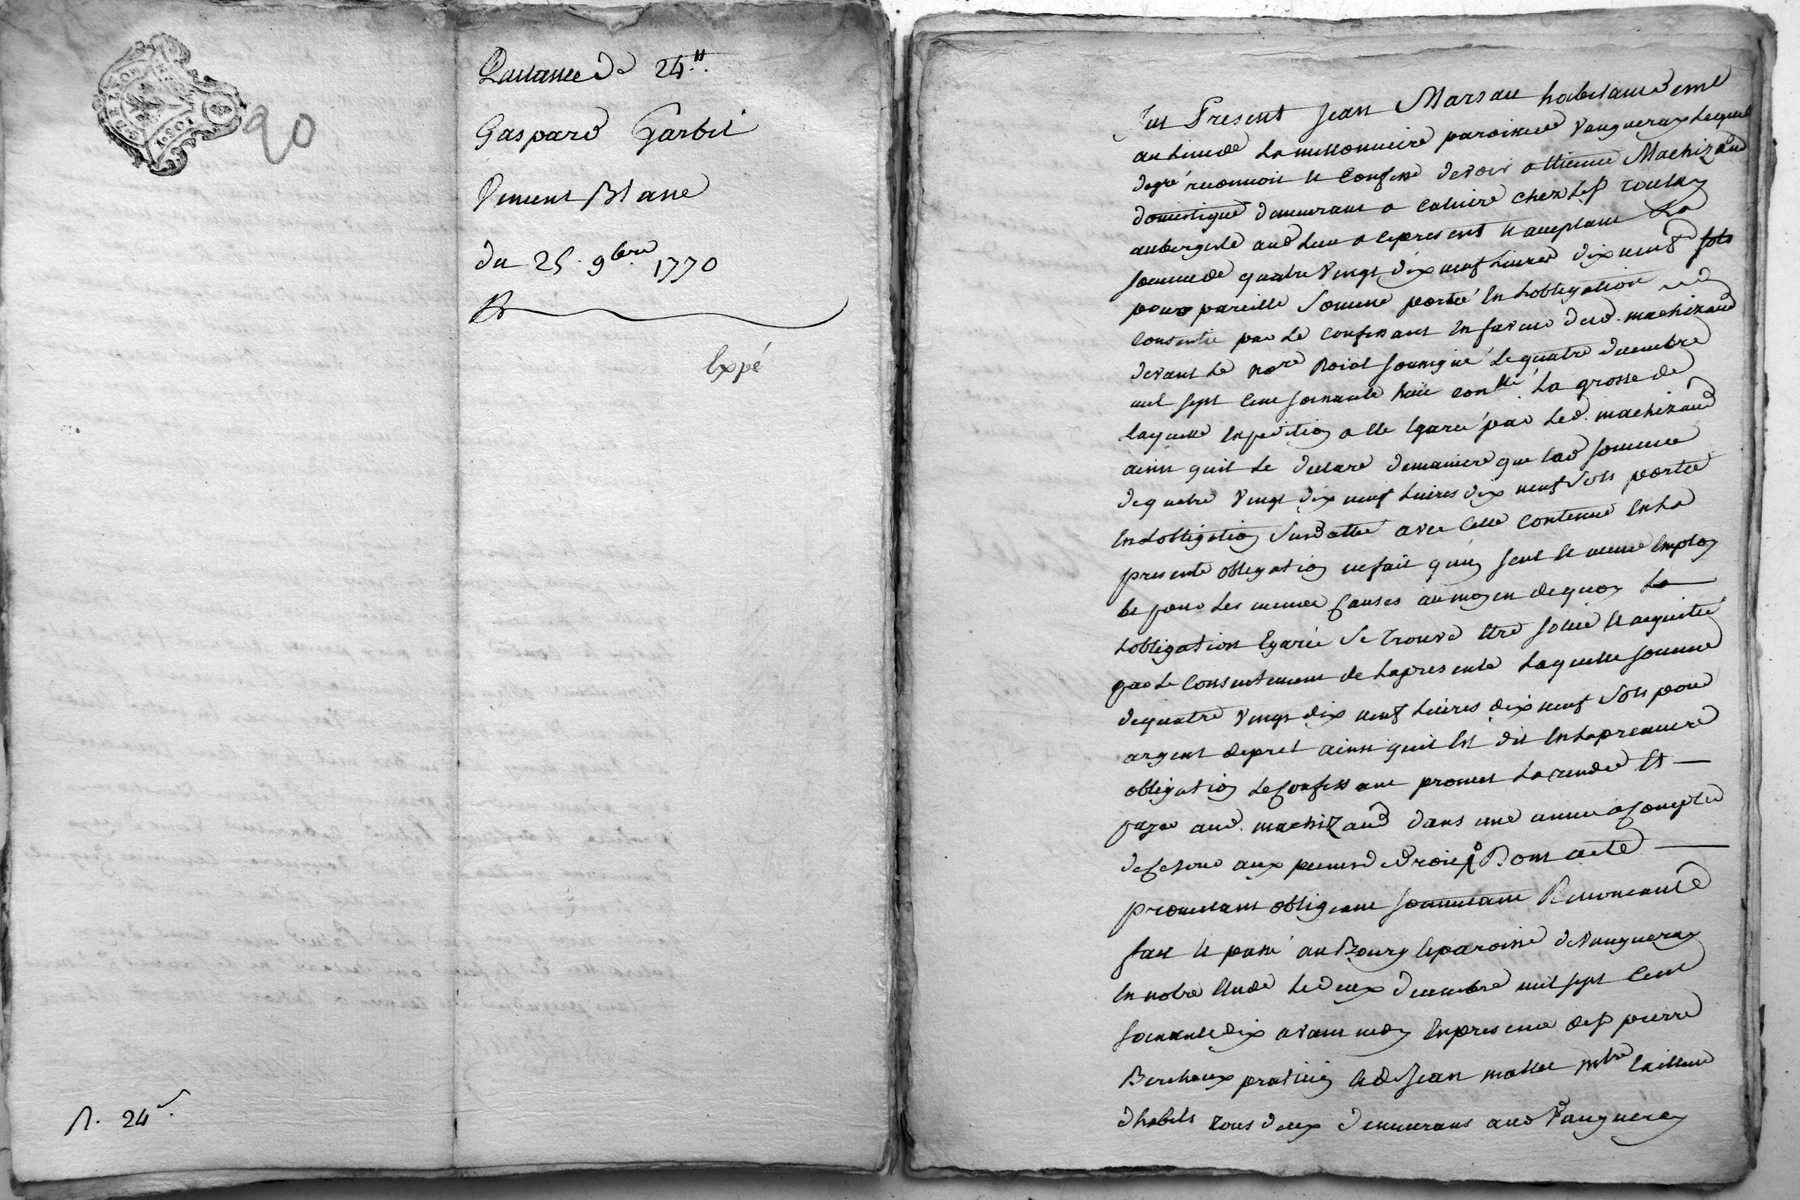 90
Quittance de 24.tt
Gaspard Garbit
Vincent Blanc
du 25. 9bre 1770
Expé
n. 24
Fut Present Jean Marsau habitant
au lieu de La paroisse Vaugneray Lequel
degré reconnoit et Confesse devoir a Etienne Machizaud
domestique demeurant a Caluire chez Le sr
aubergiste aud Lieu a ce present et acceptant La
somme de quatre Vingt dix neuf Livres dix neuf sols
pour pareille Somme portée En Lobligation
Consentie par Le Confessant En faveur dud. machizaud
devant Le nore Roial soussigné Le quatre decembre
mil sept Cent soixante huit conllé La grosse de
laquelle Expedition a été Egarée par Led. machizaud
ainsi quil Le declare demaniere que lad somme
de quatre Vingt dix neuf Livres dix neuf Sols portée
En Lobligation Susdattée avec Celle Contenue En La
presente obligation ne fait quun seul et meme Employ
be pour Les memes Causes au moyen de quoy La
Lobligation Egarée Se trouve Etre solue et acquittée
par Le Consentement de La presente Laquelle somme
de quatre Vingt dix neuf Livres dix neuf Sols pour
argent de pret ainsi quil Est dit En La premiere
obligation Le Confessant promet La rendre Et
payer aud. machizaud dans une année a Compter
de Ce jour aux peines de droit Dont acte
promettant obligeant soumettant Renonceant &
fait et passé au Bourg et paroisse de Vaugneray
En notre Etude Le deux decembre mil sept Cent
soixante dix avant midy En presence de sr pierre
Berchoux praticien et de sr Jean mattet mtre tailleur
dhabits tous deux demeurans aud Vaugneray